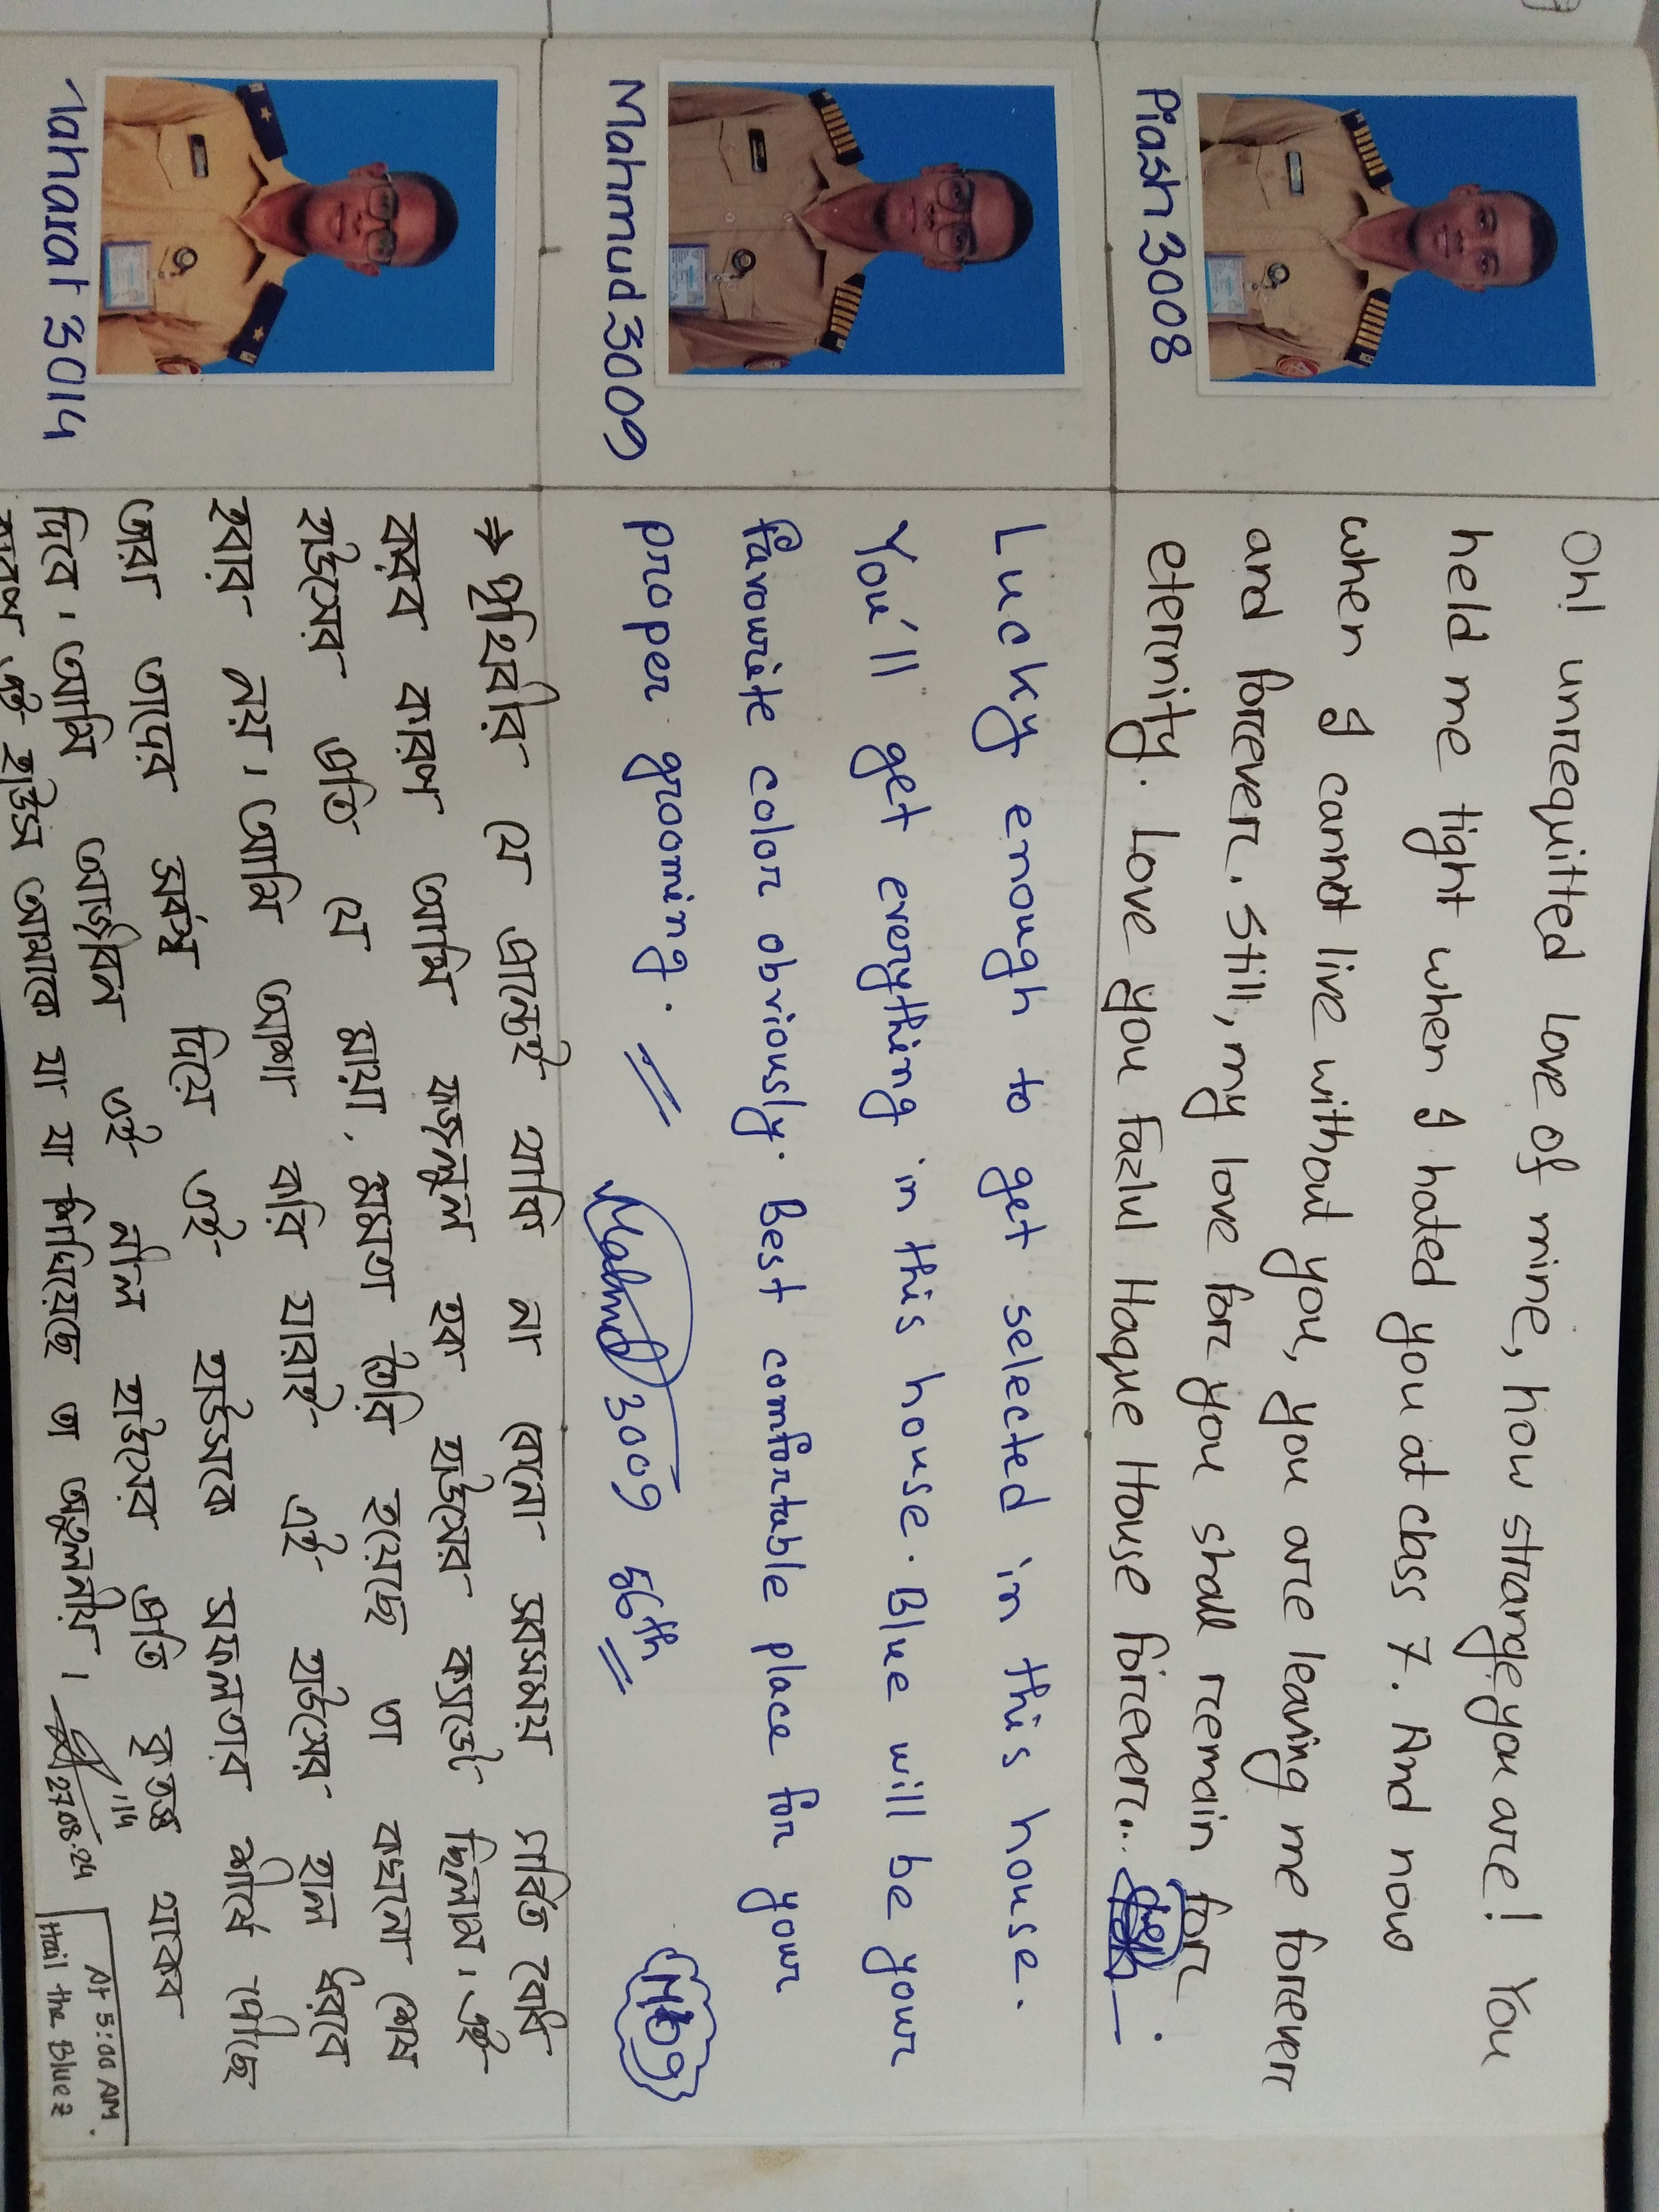 Oh! unrequitted Love of mine, how strange you are! You
held me tight when I hated you at class 7. And now
when I cannot live without you, you are leaving me forever
and forever. Still, my love for you shall remain for
eternity. Love you Fazlul Haque House forever...
Piash 3008
Lucky enough to get selected in this house.
You'll get everything in this house. Blue will be your
favourite color obviously. Best comfortable place for your
proper grooming.
Mahmud 3009 56th
Mahmud 3009
⇒ পৃথিবীর যে প্রান্তেই থাকি না কেনো সবসময় গর্বিত বোধ
করব কারণ আমি ফজলুল হক হাউসের ক্যাডেট ছিলাম। এই
হাউসের প্রতি যে মায়া, মমতা তৈরি হয়েছে তা কখনো শেষ
হবার নয়। আমি আশা করি যারাই এই হাউসের হাল ধরবে
তারা তাদের সর্বস্ব দিয়ে এই হাউসকে সফলতার শীর্ষে পৌঁছে
দিবে। আমি আজীবন এই নীল হাউসের প্রতি কৃতজ্ঞ থাকব
কারণ এই হাউস আমাকে যা যা শিখিয়েছে তা অতুলনীয়।
'14
27.08.24
At 5:00 AM.
Hail the Bluez
Taharat 3014